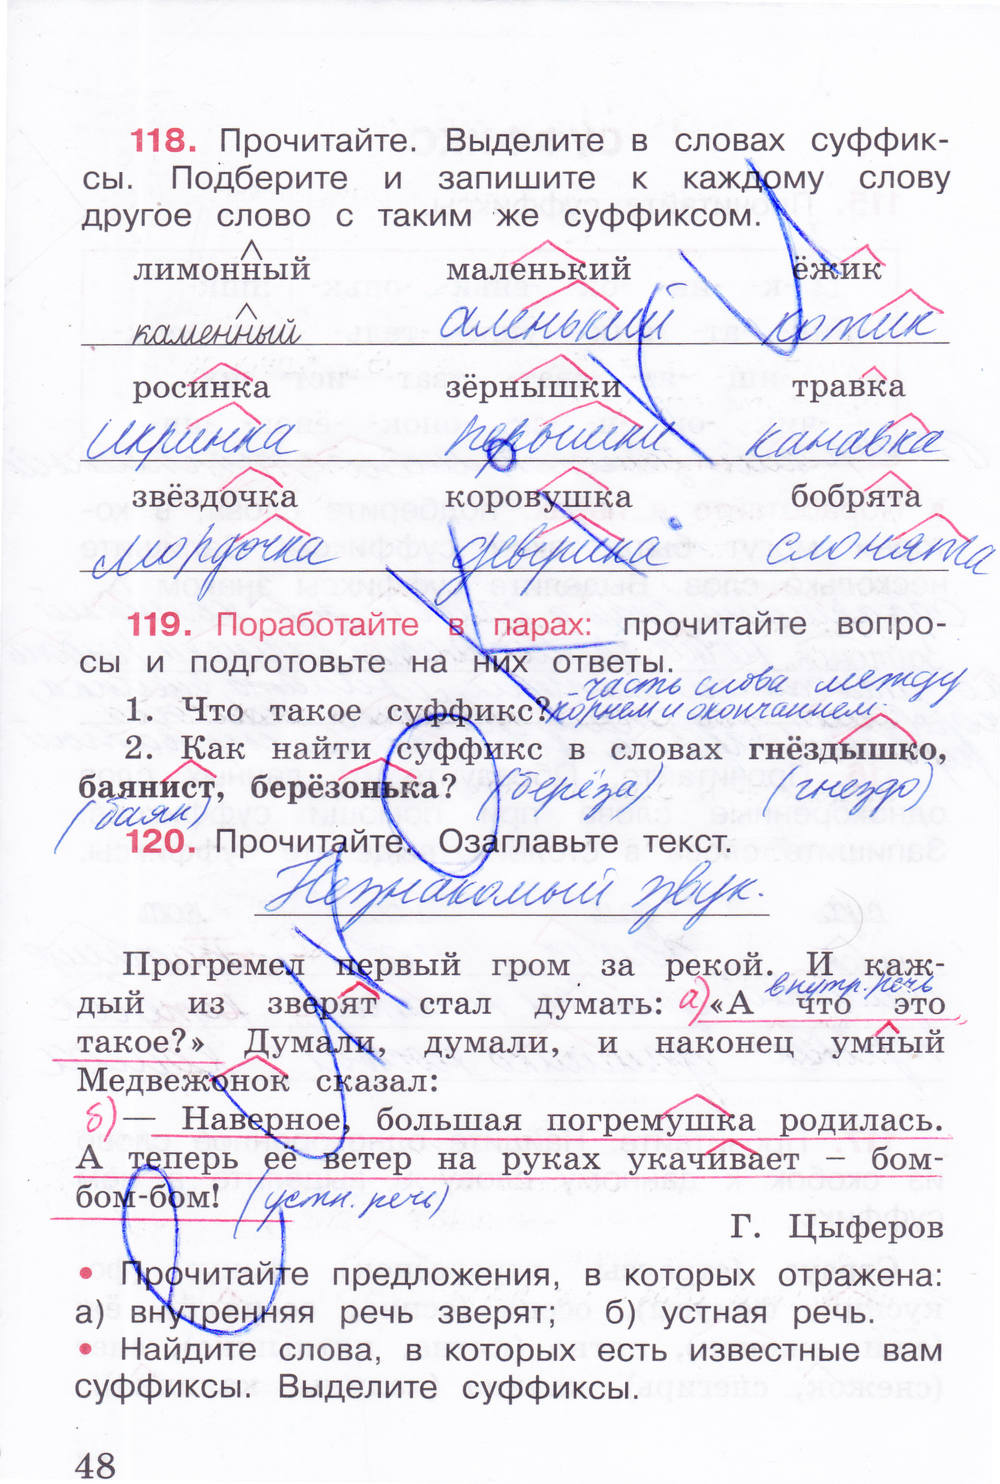 118. Прочитайте. Выделите в словах суффик-
сы. Подберите и запишите к каждому слову
другое слово с таким же суффиксом.
лимонный маленький ёжик
каменный аленький котик
росинка зёрнышки травка
икринка пёрышки канавка
звёздочка коровушка бобрята
мордочка девушка слонята
119. Поработайте в парах: прочитайте вопро-
сы и подготовьте на них ответы.
- часть слова между
1. Что такое суффикс? корнем и окончанием
2. Как найти суффикс в словах гнёздышко,
баянист, берёзонька? (берёза) (гнездо)
(баян)
120. Прочитайте. Озаглавьте текст.
Незнакомый звук.
Прогремел первый гром за рекой. И каж-
внутр. речь
дый из зверят стал думать: а) «А что это
такое?» Думали, думали, и наконец умный
Медвежонок сказал:
б) — Наверное, большая погремушка родилась.
А теперь её ветер на руках укачивает — бом-
бом-бом! (устн. речь)
Г. Цыферов
• Прочитайте предложения, в которых отражена:
а) внутренняя речь зверят; б) устная речь.
• Найдите слова, в которых есть известные вам
суффиксы. Выделите суффиксы.
48